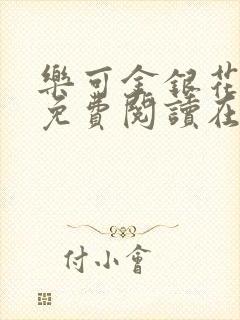 樂可金銀花
免費閱讀在
付小會